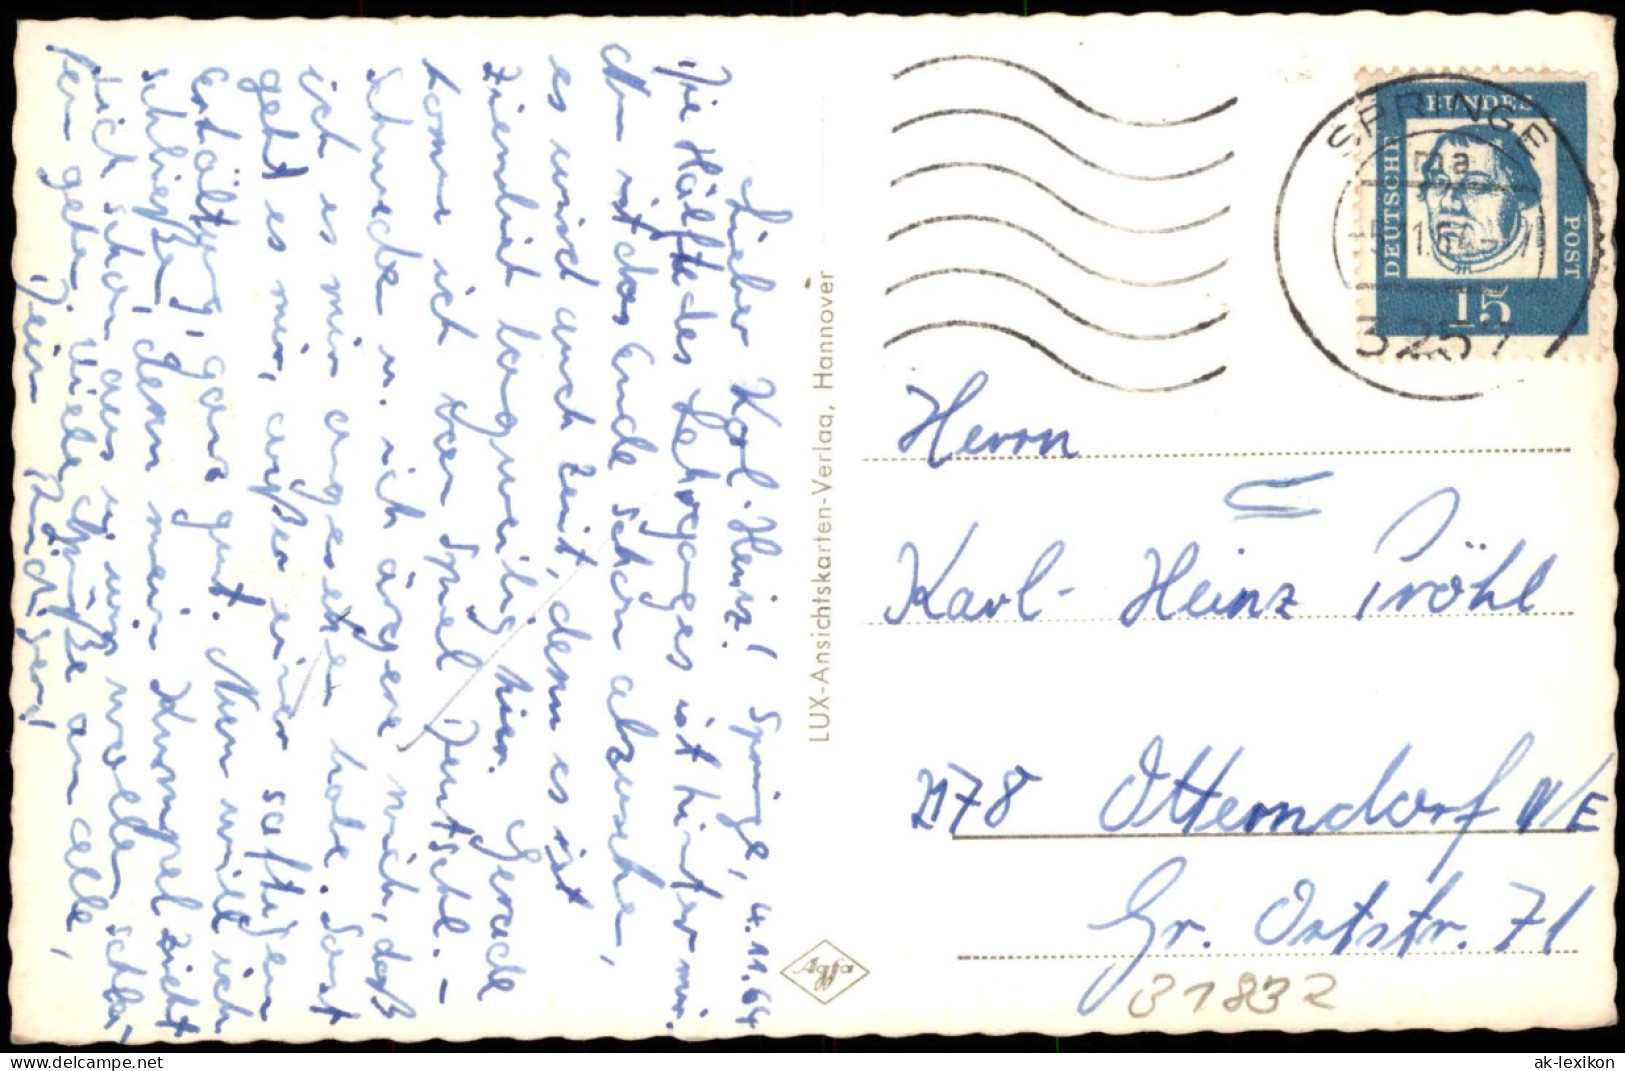 Springe, 4.11.64
Lieber Karl-Heinz!
Die Hälfte des Lehrganges ist hinter mir.
An ist das Ende schon abzusehen,
es wird auch Zeit, denn es ist
ziemlich langweilig hier. Gerade
komme ich vom Spiel Deutschl. –
Schweden u. ich ärgere mich, daß
ich es mir angesehen habe. Sonst
geht es mir, außer einer saftigen
Erkältung, ganz gut. Nun will ich
schließen, denn mein Kumpel zieht
sich schon aus u. wir wollen schla-
fen gehen. Viele Grüße an alle,
Dein Rüdiger!
LUX-Ansichtskarten-Verlag, Hannover
Agfa
DEUTSCHE
BUNDES
POST
15
SPRINGE
ma
3257
Herrn
Karl-Heinz Pröhl
2178 Otterndorf N/E
Gr. Ortstr. 71
31832
https://www.delcampe.net
ak-lexikon